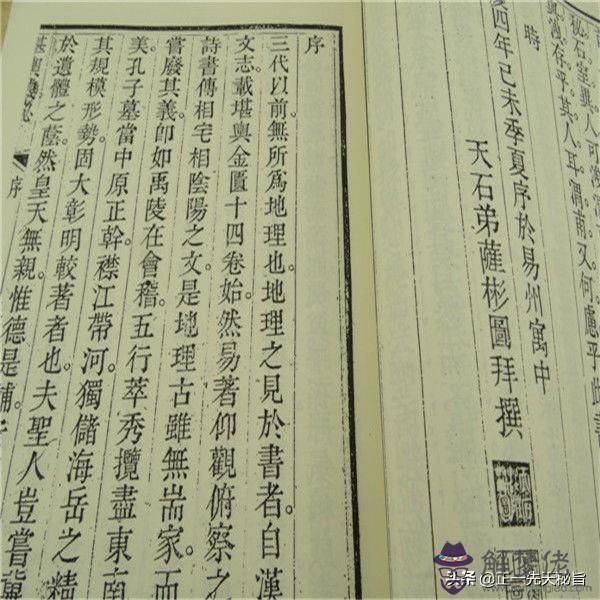 存乎其人耳。渭南又何慮乎此書
時
四年己未季夏序於易州寓中
天石弟薩彬圖拜撰
序
三代以前無所爲地理也。地理之見於書者。自漢
文志載堪輿金匱十四卷始。然易著仰觀俯察之
詩書傳相宅相陰陽之文。是地理古雖無耑家。而
嘗廢其義。卽如禹陵在會稽。五行萃秀攬盡東南
美孔子墓當中原正幹。襟江帶河。獨儲海岳之精
其規模形勢。固大彰明較著者也。夫聖人豈嘗冀
於遺體之蔭。然皇天無親。惟德是輔
序
头条 @正一先天秘旨